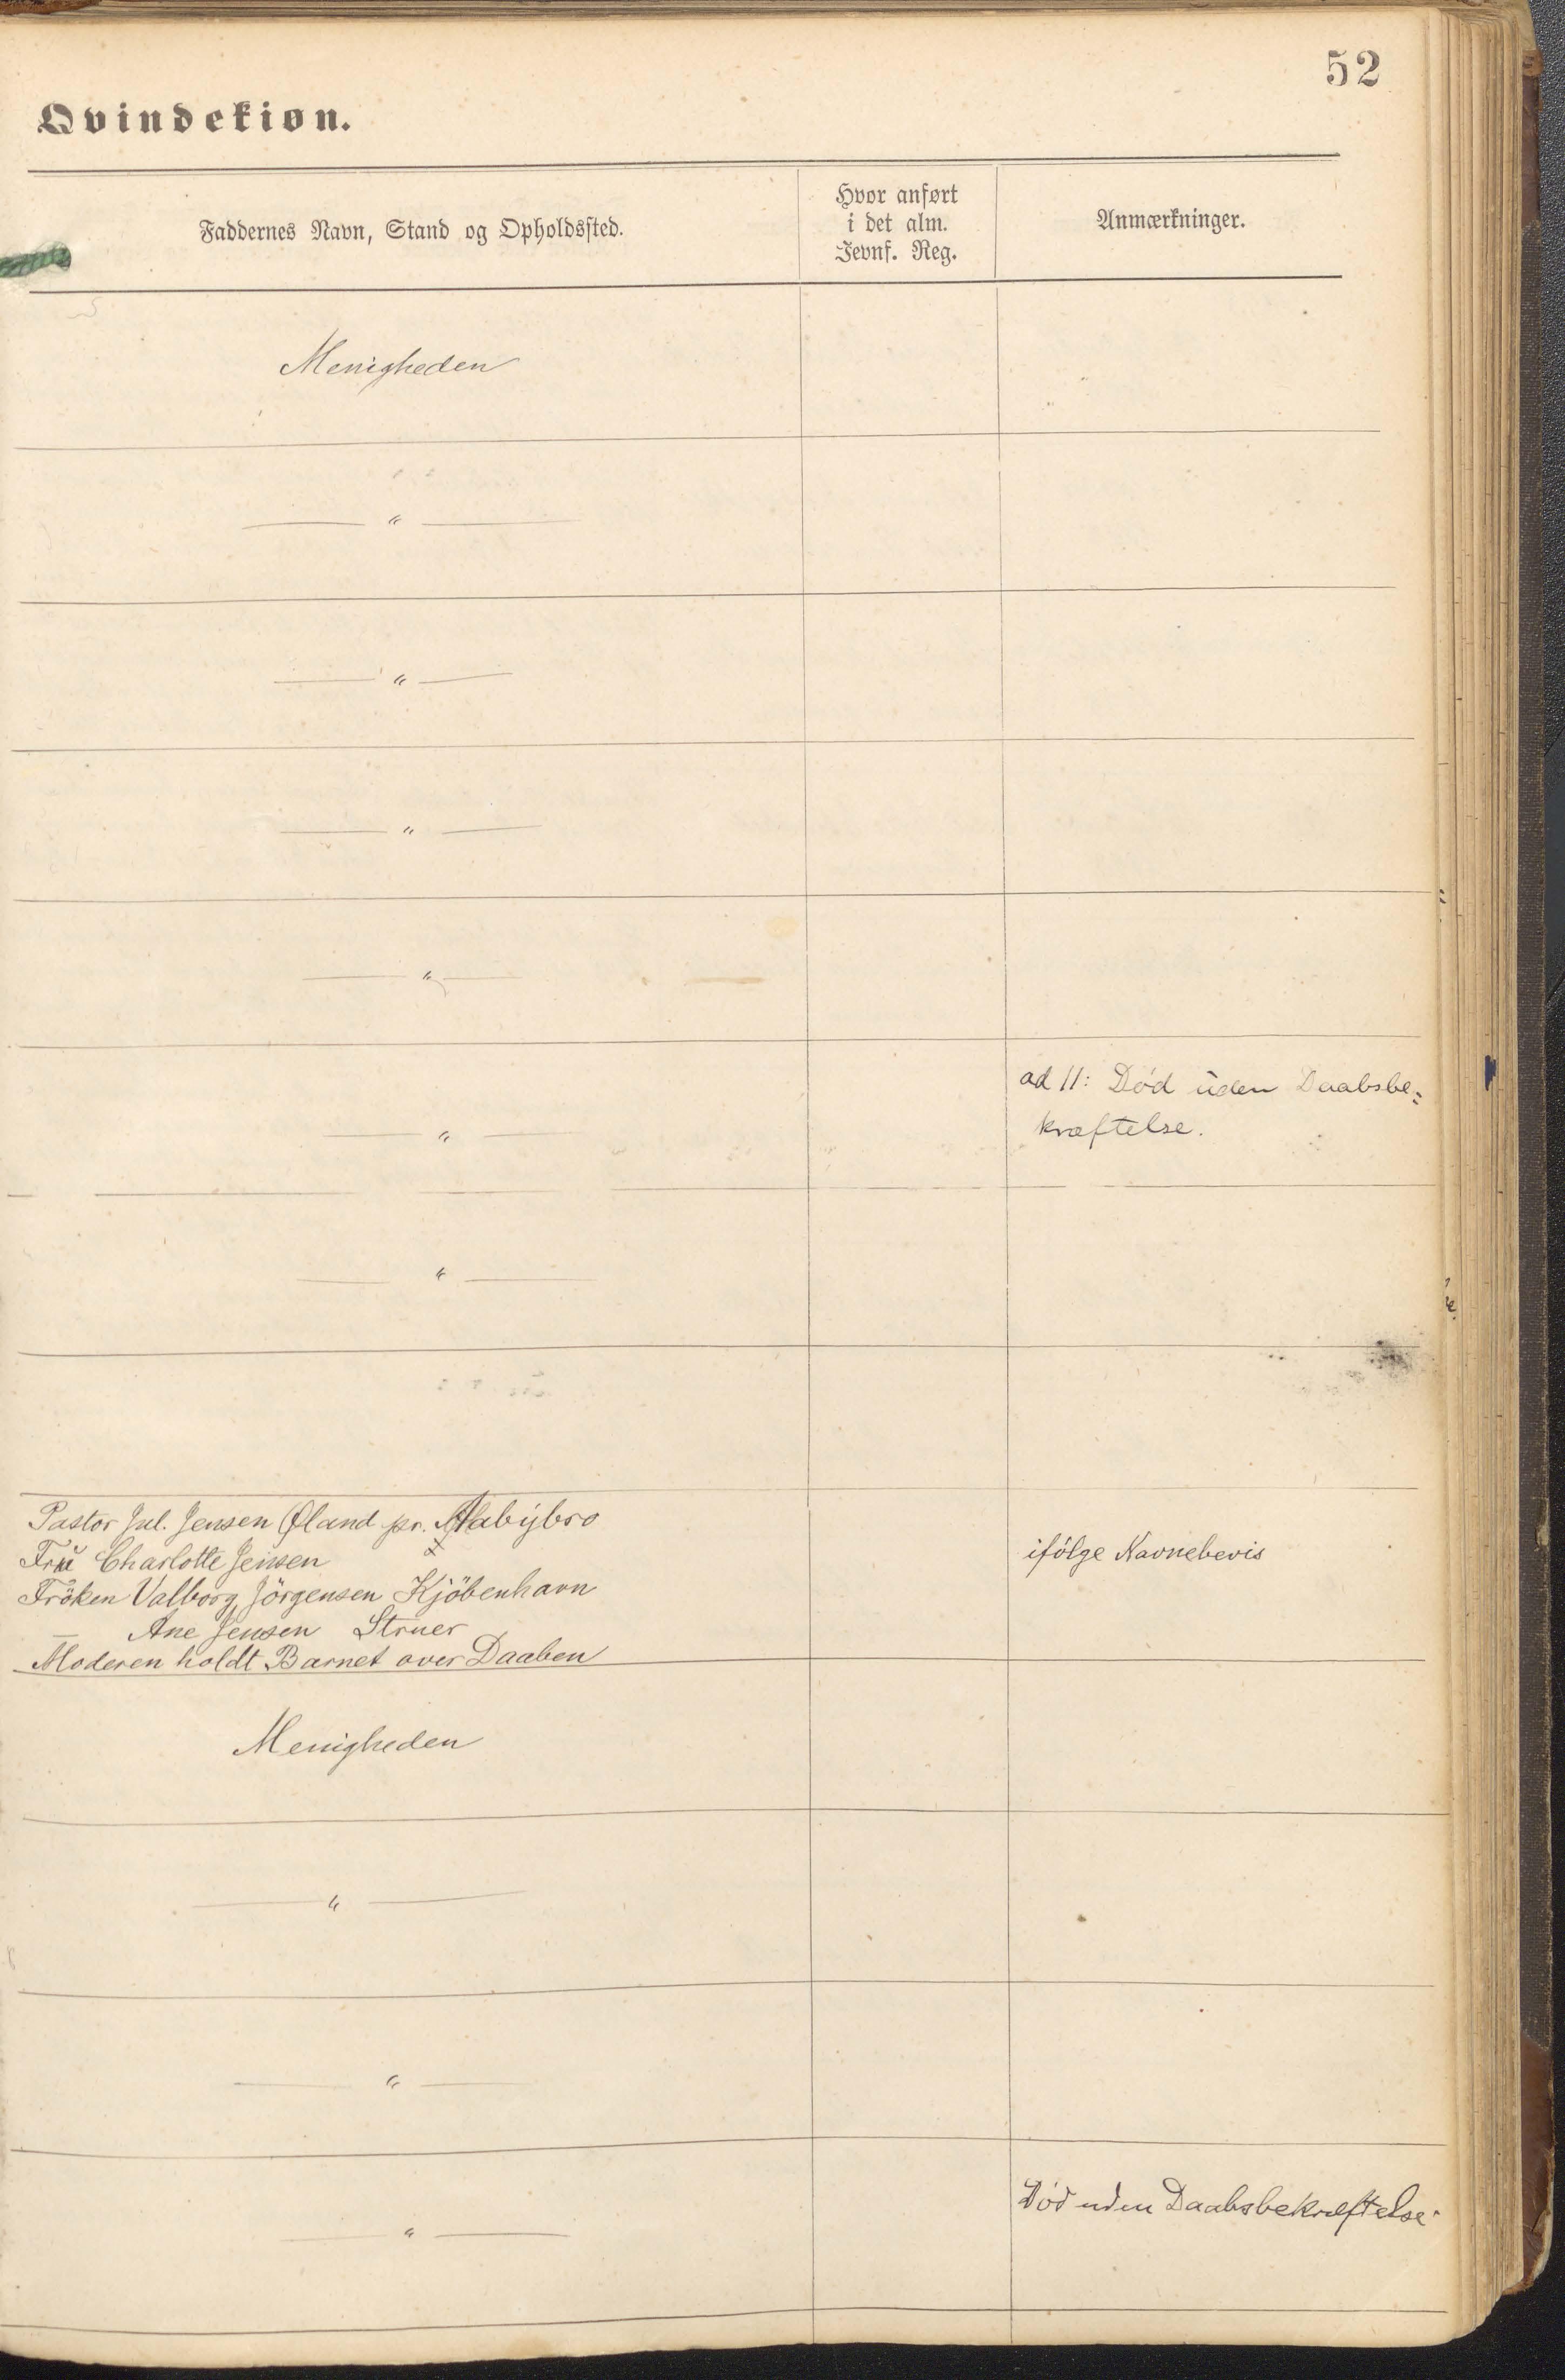 52
Qvindekiøn.
Faddernes Navn, Stand og Opholdssted.
Hvor anført
i det alm.
Jevnf. Reg.
Anmærkninger.
Menigheden
— " —
— " —
— " —
— " —
ad 11: Død uden Daabsbe-
kræftelse.
— " —
— " —
Pastor Jul. Jensen Øland pr. Aabybro
Fru Charlotte Jensen
Fröken Valborg Jörgensen Kjöbenhavn
— Ane Jensen Struer
Moderen holdt Barnet over Daaben
ifölge Navnebevis
Menigheden
— " —
— " —
Död uden Daabsbekræftelse.
— " —